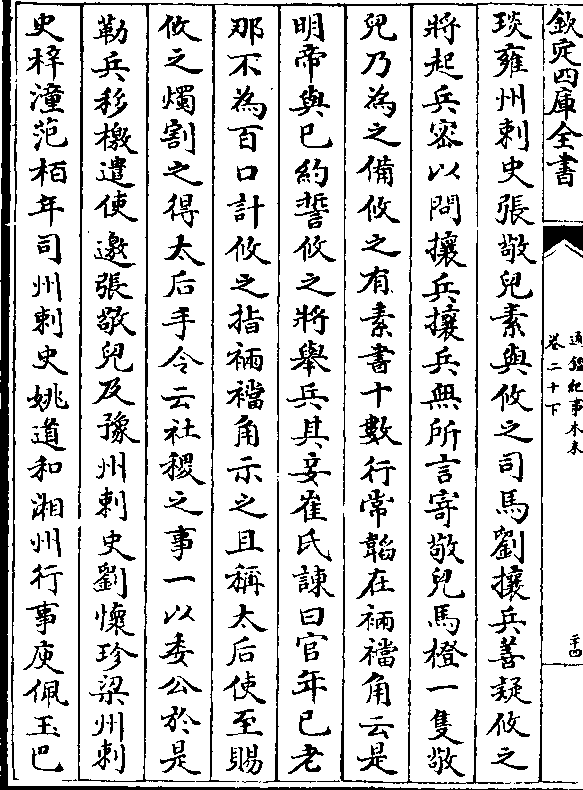 欽定四庫全書
通鑑紀事本末
卷二十下
二十四
琰雍州刺史張敬兒素與攸之司馬劉攘兵善疑攸之
將起兵密以問攘兵攘兵無所言寄敬兒馬橙一隻敬
兒乃為之備攸之有素書十數行常韜在裲襠角云是
明帝與已約誓攸之將舉兵其妾崔氏諫曰官年已老
那不為百口計攸之指裲襠角示之且稱太后使至賜
攸之燭割之得太后手令云社稷之事一以委公於是
勒兵移檄遣使邀張敬兒及豫州刺史劉懷珍梁州刺
史梓潼范栢年司州刺史姚道和湘州行事庾佩玉巴